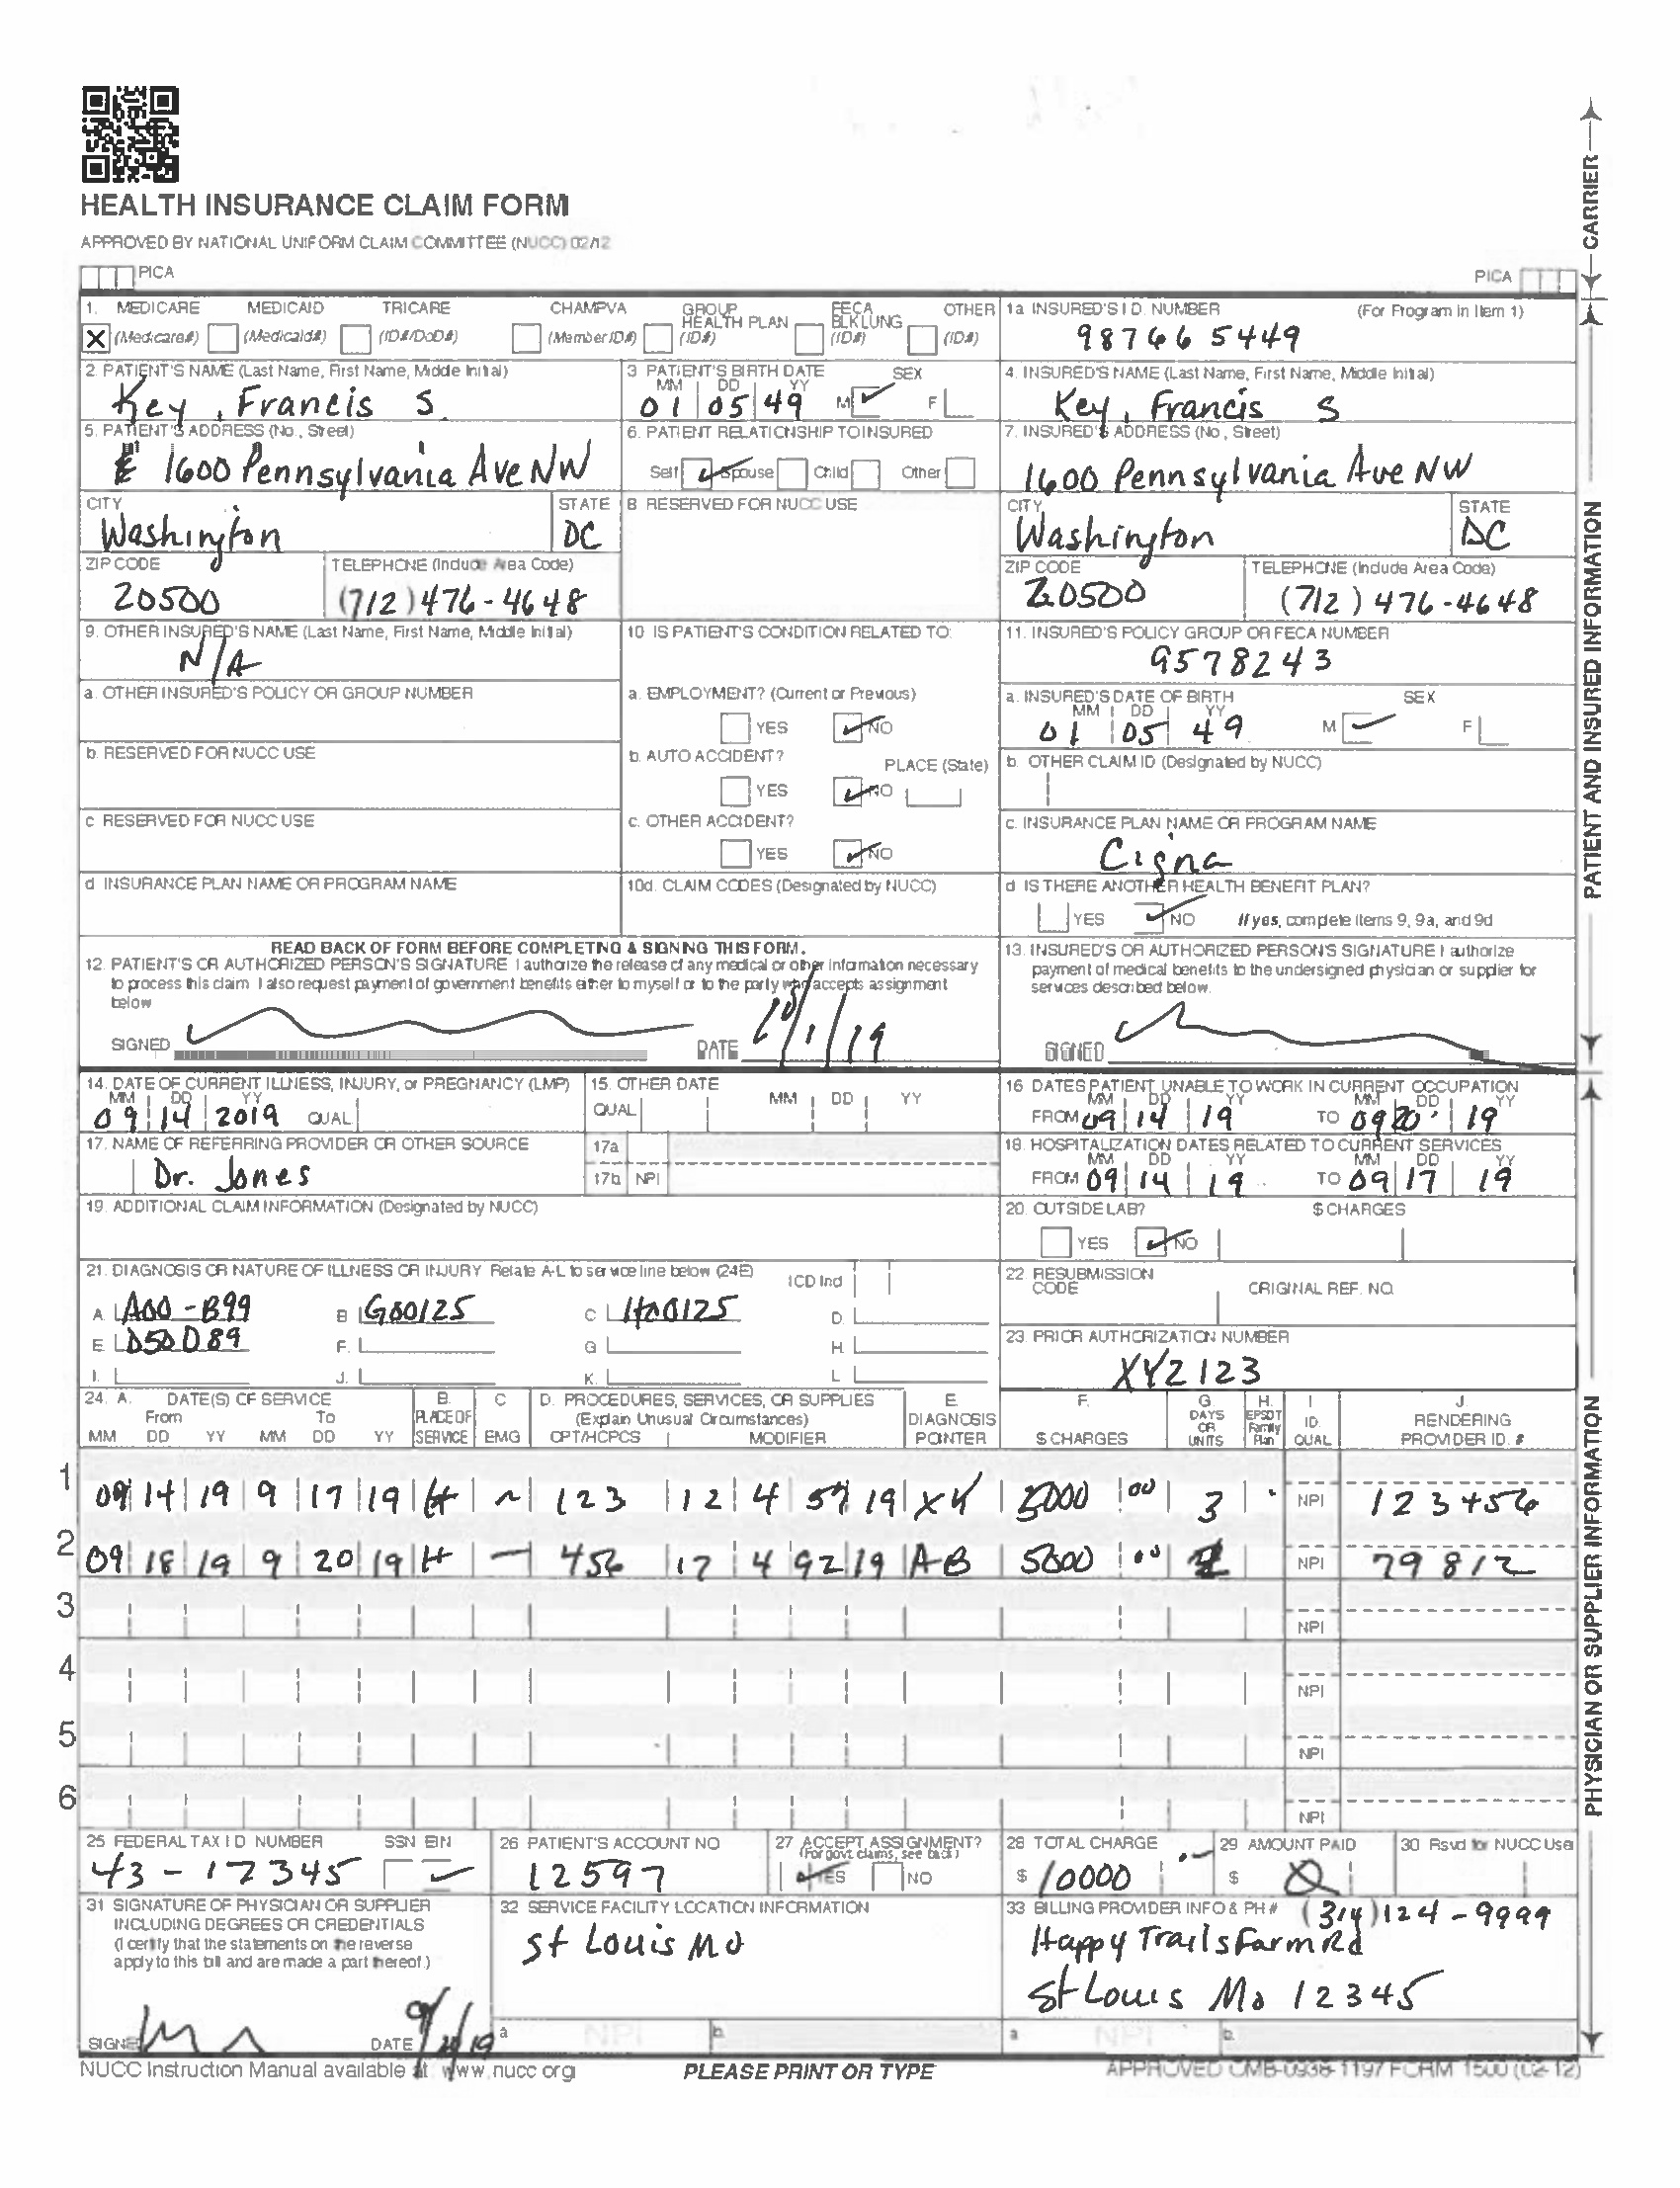 HEALTH INSURANCE CLAIM FORM
APPROVED BY NATIONAL UNIFORM CLAIM COMMITTEE (NUCC) 02/12
PICA PICA
CARRIER
1. MEDICARE MEDICAID TRICARE CHAMPVA GROUP HEALTH PLAN FECA BLK LUNG OTHER
X (Medicare#) (Medicaid#) (ID#/DoD#) (Member ID#) (ID#) (ID#) (ID#)
1a INSURED'S I D. NUMBER (For Program in Item 1)
98766 5449
2. PATIENT'S NAME (Last Name, First Name, Middle Initial)
Key, Francis S.
3 PATIENT'S BIRTH DATE SEX
MM DD YY
01 05 49 M F
4. INSURED'S NAME (Last Name, First Name, Middle Initial)
Key, Francis S
5. PATIENT'S ADDRESS (No., Street)
1600 Pennsylvania Ave NW
6. PATIENT RELATIONSHIP TO INSURED
Self Spouse Child Other
7. INSURED'S ADDRESS (No, Street)
1600 Pennsylvania Ave NW
CITY STATE
Washington DC
8 RESERVED FOR NUCC USE
CITY STATE
Washington DC
ZIP CODE TELEPHONE (Include Area Code)
20500 (712) 476-4648
ZIP CODE TELEPHONE (Include Area Code)
20500 (712) 476-4648
9. OTHER INSURED'S NAME (Last Name, First Name, Middle Initial)
N/A
10 IS PATIENT'S CONDITION RELATED TO:
11. INSURED'S POLICY GROUP OR FECA NUMBER
9578243
a. OTHER INSURED'S POLICY OR GROUP NUMBER
a. EMPLOYMENT? (Current or Previous)
YES NO
a. INSURED'S DATE OF BIRTH SEX
MM DD YY
01 05 49 M F
b RESERVED FOR NUCC USE
b. AUTO ACCIDENT? PLACE (State)
YES NO
b. OTHER CLAIM ID (Designated by NUCC)
c RESERVED FOR NUCC USE
c. OTHER ACCIDENT?
YES NO
c. INSURANCE PLAN NAME OR PROGRAM NAME
Cigna
d INSURANCE PLAN NAME OR PROGRAM NAME
10d. CLAIM CODES (Designated by NUCC)
d IS THERE ANOTHER HEALTH BENEFIT PLAN?
YES NO If yes, complete items 9, 9a, and 9d
PATIENT AND INSURED INFORMATION
READ BACK OF FORM BEFORE COMPLETING & SIGNING THIS FORM.
12. PATIENT'S OR AUTHORIZED PERSON'S SIGNATURE I authorize the release of any medical or other information necessary
to process this claim I also request payment of government benefits either to myself or to the party who accepts assignment
below
SIGNED DATE 10/1/19
13. INSURED'S OR AUTHORIZED PERSON'S SIGNATURE I authorize
payment of medical benefits to the undersigned physician or supplier for
services described below.
SIGNED
14. DATE OF CURRENT ILLNESS, INJURY, or PREGNANCY (LMP)
MM DD YY
09 14 2019 QUAL
15. OTHER DATE
QUAL MM DD YY
16 DATES PATIENT UNABLE TO WORK IN CURRENT OCCUPATION
MM DD YY MM DD YY
FROM 09 14 19 TO 09 20 19
17. NAME OF REFERRING PROVIDER OR OTHER SOURCE
Dr. Jones
17a
17b NPI
18. HOSPITALIZATION DATES RELATED TO CURRENT SERVICES
MM DD YY MM DD YY
FROM 09 14 19 TO 09 17 19
19. ADDITIONAL CLAIM INFORMATION (Designated by NUCC)
20. OUTSIDE LAB? $ CHARGES
YES NO
21. DIAGNOSIS OR NATURE OF ILLNESS OR INJURY Relate A-L to service line below (24E) ICD Ind
A. A00-B99 B G00125 C H00125 D.
E. D50D89 F. G H.
I. J. K. L
22. RESUBMISSION CODE ORIGINAL REF. NO.
23. PRIOR AUTHORIZATION NUMBER
XYZ123
24. A. DATE(S) OF SERVICE B. C D. PROCEDURES, SERVICES, OR SUPPLIES E. F. G. H. I J.
From To PLACE OF SERVICE EMG (Explain Unusual Circumstances) DIAGNOSIS POINTER $ CHARGES DAYS OR UNITS EPSDT Family Plan ID. QUAL RENDERING PROVIDER ID. #
MM DD YY MM DD YY CPT/HCPCS MODIFIER
1 09 14 19 9 17 19 H ~ 123 12 4 57 19 XY 5000 00 3 NPI 123456
2 09 18 19 9 20 19 H — 456 12 4 92 19 AB 5000 00 NPI 79812
3 NPI
4 NPI
5 NPI
6 NPI
PHYSICIAN OR SUPPLIER INFORMATION
25 FEDERAL TAX I D NUMBER SSN EIN
43-12345
26 PATIENT'S ACCOUNT NO
12597
27 ACCEPT ASSIGNMENT?
(For govt. claims, see back)
YES NO
28 TOTAL CHARGE
$ 10000
29 AMOUNT PAID
$ 0
30 Rsvd for NUCC Use
31 SIGNATURE OF PHYSICIAN OR SUPPLIER
INCLUDING DEGREES OR CREDENTIALS
(I certify that the statements on the reverse
apply to this bill and are made a part thereof.)
SIGNED DATE
32 SERVICE FACILITY LOCATION INFORMATION
St Louis Mo
a NPI b.
33 BILLING PROVIDER INFO & PH # (314) 124-9999
Happy Trails Farm Rd
St Louis Mo 12345
a NPI b.
NUCC Instruction Manual available at: www.nucc org
PLEASE PRINT OR TYPE
APPROVED OMB-0938-1197 FORM 1500 (02-12)